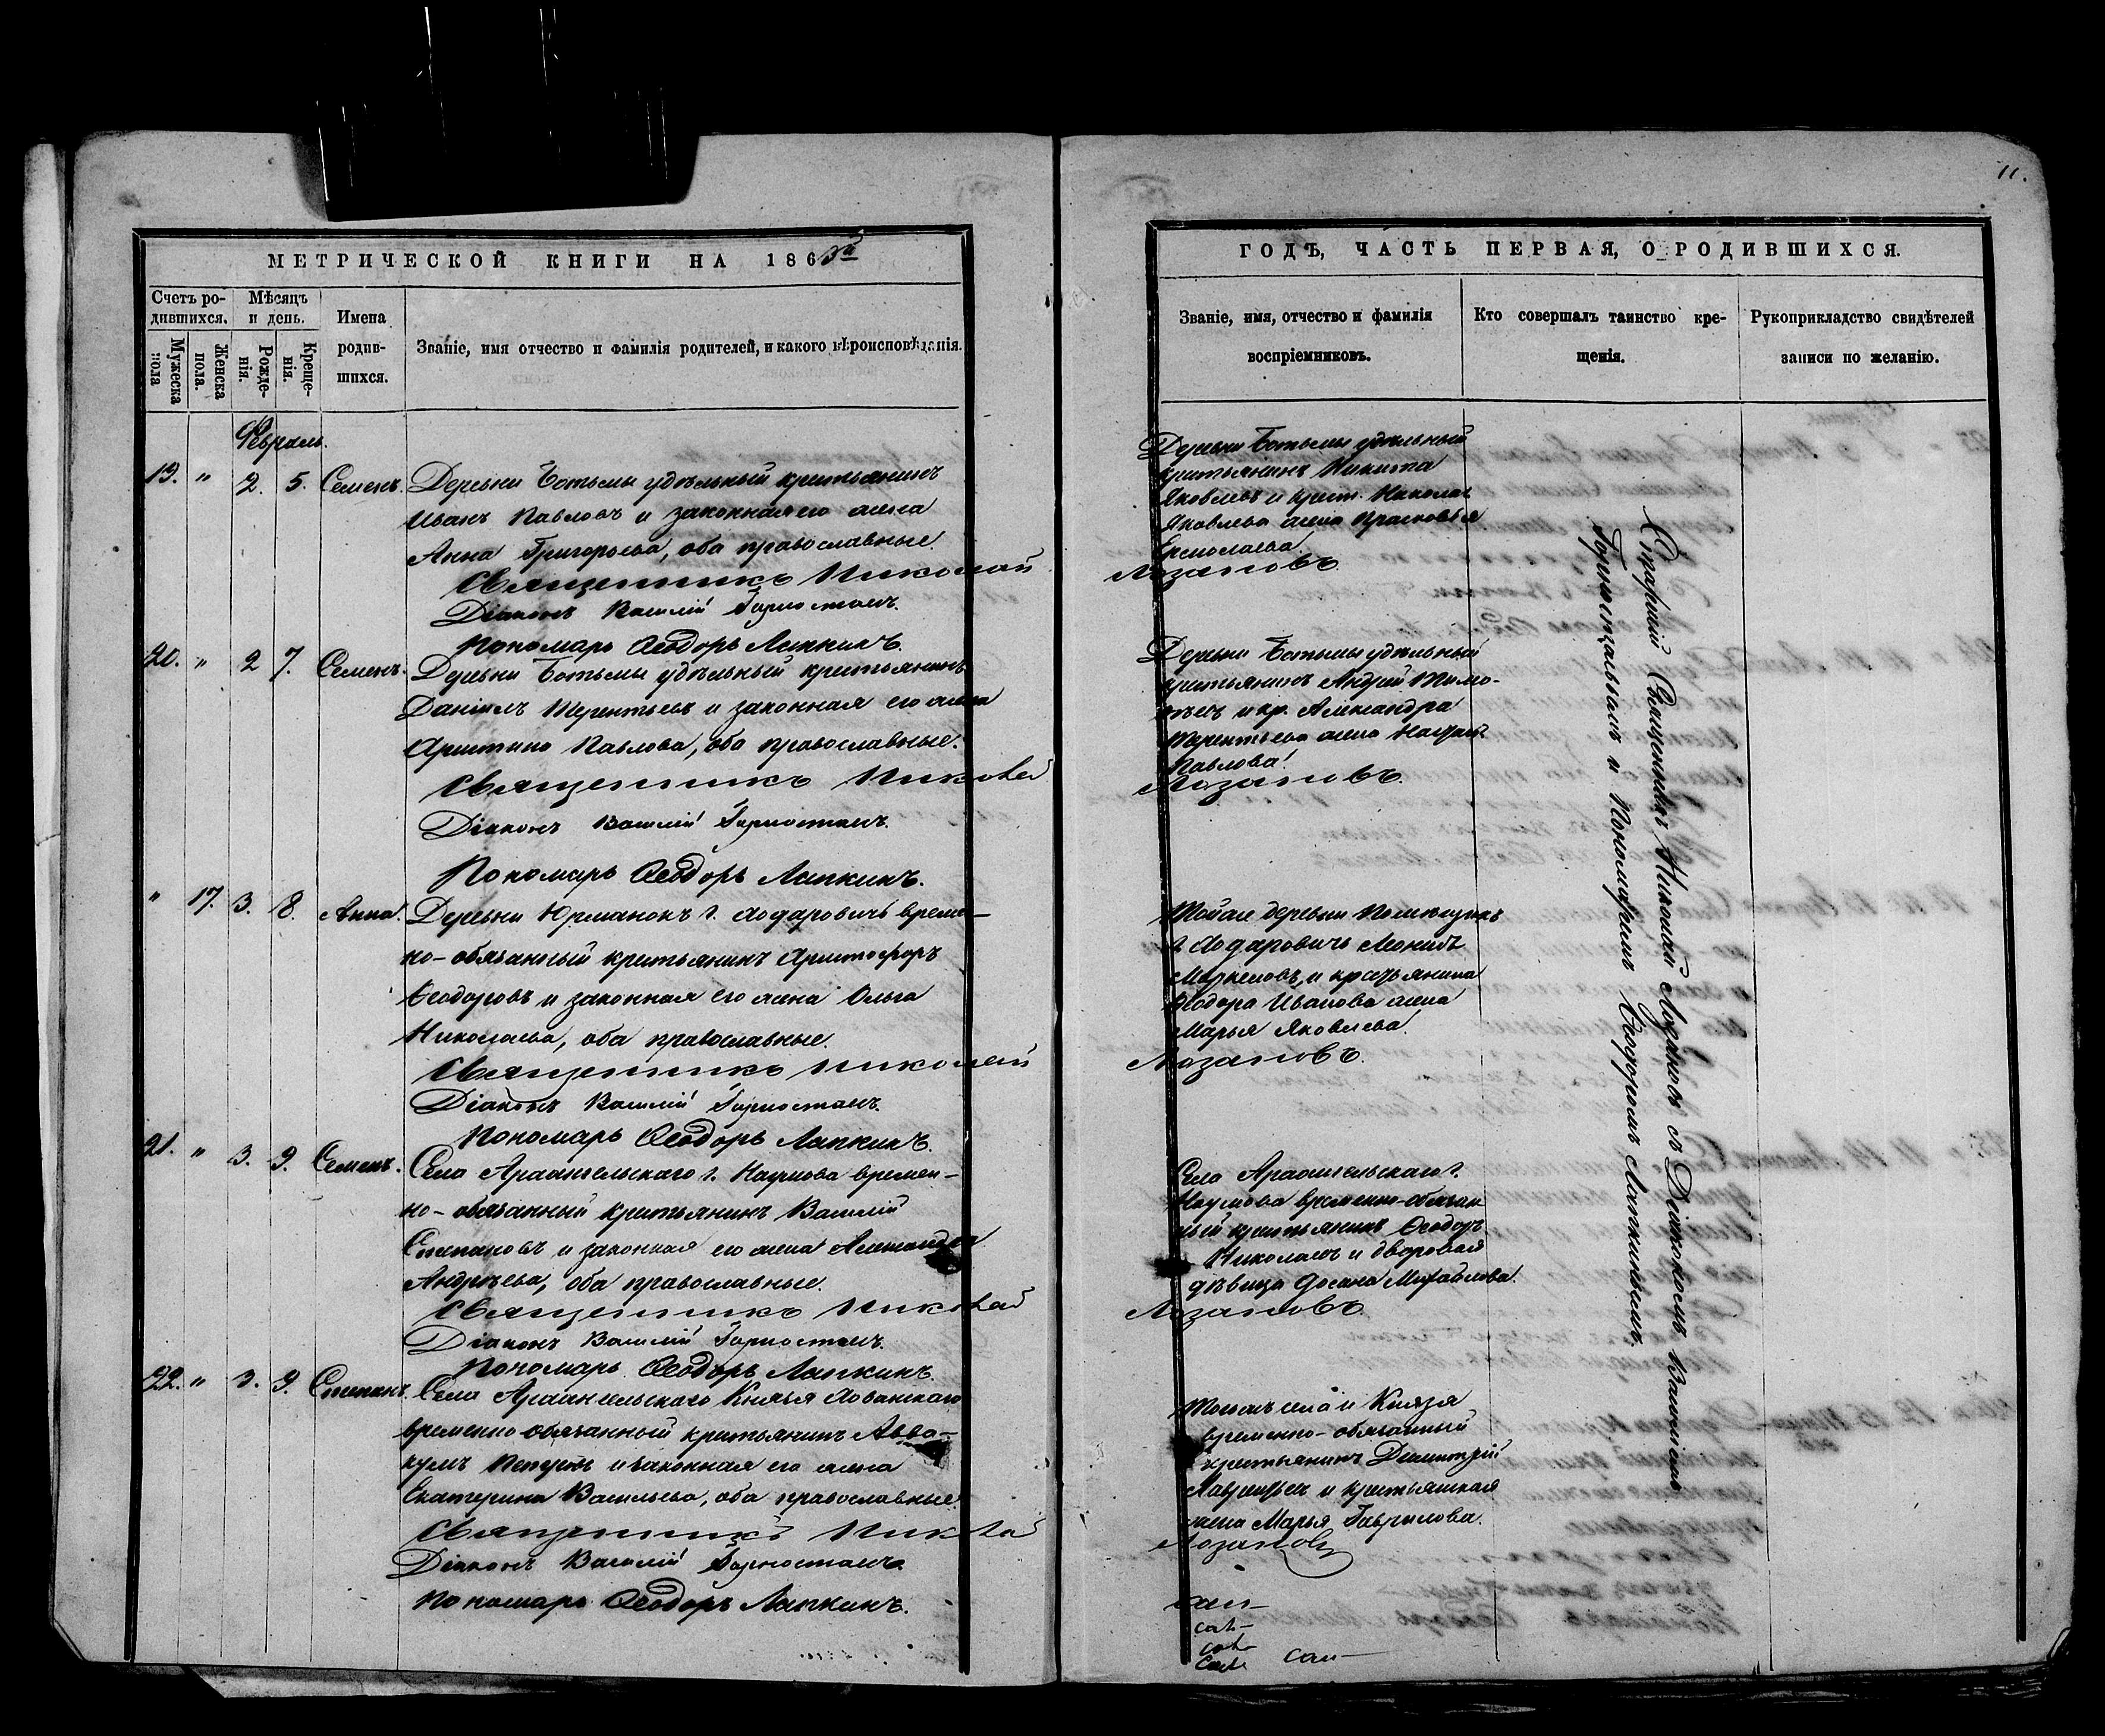 МЕТРИЧЕСКОЙ КНИГИ НА 186
Счетъ ро-
дившихся.
Мѣсяцъ
и день.
Мужеска
пола
Женска
пола.
Рожде-
нія.
Креще-
нія.
Имена
родив-
шихся.
Званіе, имя отчество и фамилія родителей, и какого вѣроисповѣданія.
Февраль.
19. " 2. 5. Семенъ. Деревни Ботьмы удѣльный крестьянинъ
Иванъ Павловъ и законная его жена
Анна Григорьева, оба православные.
Священникъ Николай
Діаконъ Василій
Пономарь Ѳеодоръ Лапкинъ.
20. " 2 7. Семенъ. Деревни Ботьмы удѣльный крестьянинъ
Даніилъ Терентьевъ и законная его жена
Христина Павлова, оба православные.
Священникъ Николай
Діаконъ Василій
Пономарь Ѳеодоръ Лапкинъ.
" 17. 3. 8. Анна. Деревни г. времен-
но-обязанный крестьянинъ Христофоръ
Ѳеодоровъ и законная его жена Ольга
Николаева, оба православные.
Священникъ Николай
Діаконъ Василій
Пономарь Ѳеодоръ Лапкинъ.
21. " 3. 9. Семенъ. Села Архангельскаго г. Наумова времен-
но-обязанный крестьянинъ Василій
Степановъ и законная его жена Александра
Андреева, оба православные.
Священникъ Николай
Діаконъ Василій
Пономарь Ѳеодоръ Лапкинъ.
22. " 3. 9. Степанъ. Села Архангельскаго Князя Хованскаго
временно обязанный крестьянинъ Авва-
кумъ и законная его жена
Екатерина Васильева, оба православные.
Священникъ Николай
Діаконъ Василій
Пономарь Ѳеодоръ Лапкинъ.
11.
ГОДЪ, ЧАСТЬ ПЕРВАЯ, О РОДИВШИХСЯ.
Званіе, имя, отчество и фамилія
воспріемниковъ.
Кто совершалъ таинство кре-
щенія.
Рукоприкладство свидѣтелей
записи по желанію.
Деревни Ботьмы удѣльный
крестьянинъ Никита
Яковлевъ и крест. Николая
Яковлева жена Прасковья
Ермолаева.
Лозановъ.
Деревни Ботьмы удѣльный
крестьянинъ Андрей Тимо-
ѳеевъ и кр. Александра
Терентьева жена
Павлова.
Лозановъ.
Той же деревни
Леонидъ
Маркеловъ, и крестьянина
Ѳеодора Иванова жена
Марья Яковлева.
Лозановъ.
Села Архангельскаго г.
Наумова временно-обязан
ный крестьянинъ Ѳеодоръ
Николаевъ и дворовая
дѣвица Михайлова.
Лозановъ.
Того же села и Князя
временно-обязанный
крестьянинъ Димитрій
Лаврентьевъ и крестьянская
жена Марья Гаврилова.
Лозановъ
Священникъ Николай Лозановъ съ Діакономъ Василіемъ
и Пономаремъ Ѳеодоромъ Лапкинымъ.